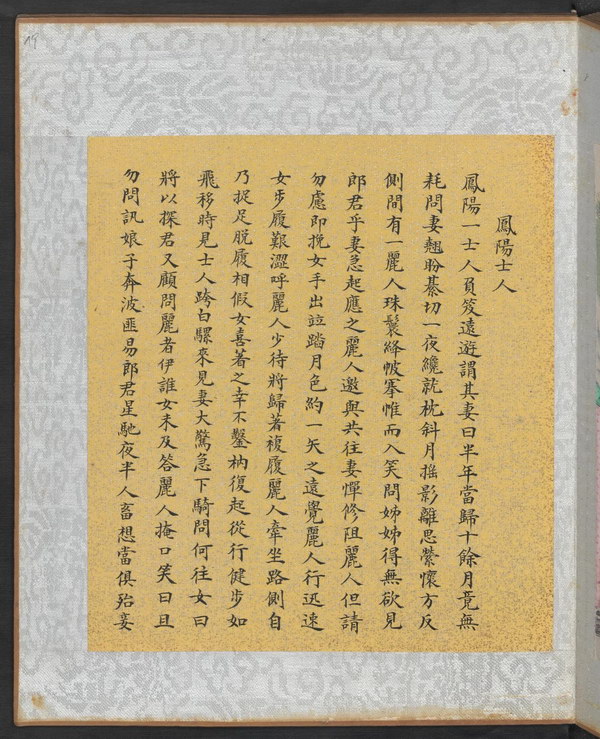 19
鳳陽士人
鳳陽一士人負笈遠遊謂其妻曰半年當歸十餘月竟無
耗問妻翹盼綦切一夜纔就枕斜月搖影離思縈懷方反
側間有一麗人珠鬟絳帔搴惟而入笑問姊姊得無欲見
郎君乎妻急起應之麗人邀與共往妻憚修阻麗人但請
勿慮即挽女手出竝踏月色約一矢之遠覺麗人行迅速
女步履艱澀呼麗人少待將歸著複履麗人牽坐路側自
乃捉足脫履相假女喜著之幸不鑿枘復起從行健步如
飛移時見士人跨白騾來見妻大驚急下騎問何往女曰
將以探君又顧問麗者伊誰女未及答麗人掩口笑曰且
勿問訊娘子奔波匪易郎君星馳夜半人畜想當俱殆妾